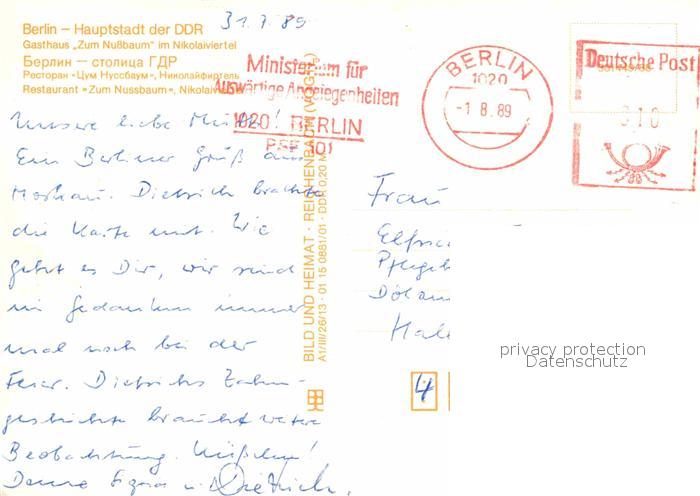 31.7.89
Berlin – Hauptstadt der DDR
Gasthaus „Zum Nußbaum" im Nikolaiviertel
Берлин — столица ГДР
Ресторан «Цум Нуссбаум», Николайфиртель
Restaurant "Zum Nussbaum", Nikolai
Ministerium für
Auswärtige Angelegenheiten
1020 BERLIN
PSF 101
BERLIN
1020
-1.8.89
Deutsche Post
010
Unsere liebe Mutter!
Ein Berliner Gruß aus
Moskau. Dietrich brachte
die Karte mit. Wie
geht es Dir, wir sind
in Gedanken immer
mal noch bei der
Feier. Dietrichs Zahn-
geschichte braucht weitere
Beobachtung. Küßchen!
Deine u. Dietrich.
BILD UND HEIMAT · REICHENBACH (VOGTL)
A1/III/26/13 · 01 15 0881/01 · DDR 0,20 M
Frau
Elfri
Pflegeh
Dölau
Hall
4
privacy protection
Datenschutz